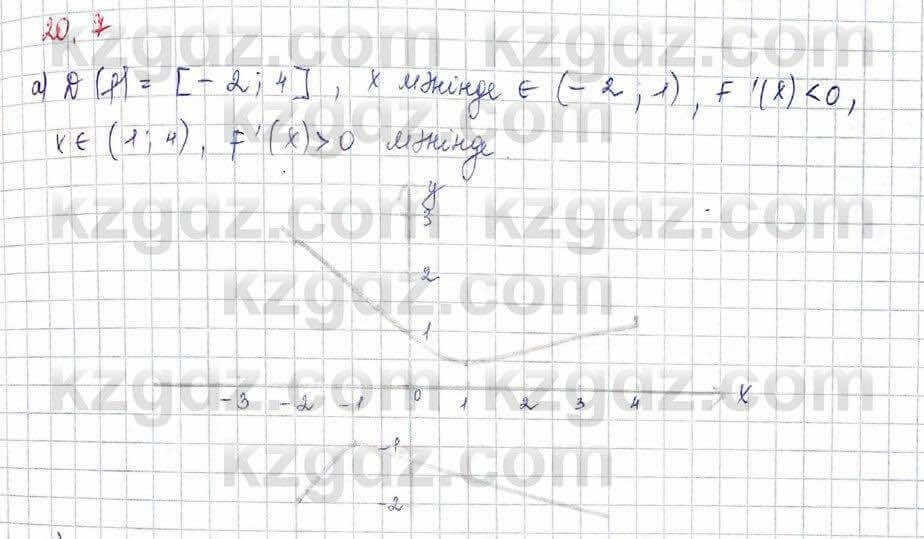 20.7
а) D(f) = [-2; 4], x мәнінде ∈ (-2, 1), F'(x)<0,
x∈ (1; 4), F'(x)>0 мәнінде.
y
3
2
1
-3 -2 -1 0 1 2 3 4 X
-1
-2
kzgdz.com kzgdz.com
kzgdz.com
kzgdz.com kzgdz.com
kzgdz.com
kzgdz.com kzgdz.com
kzgdz.com